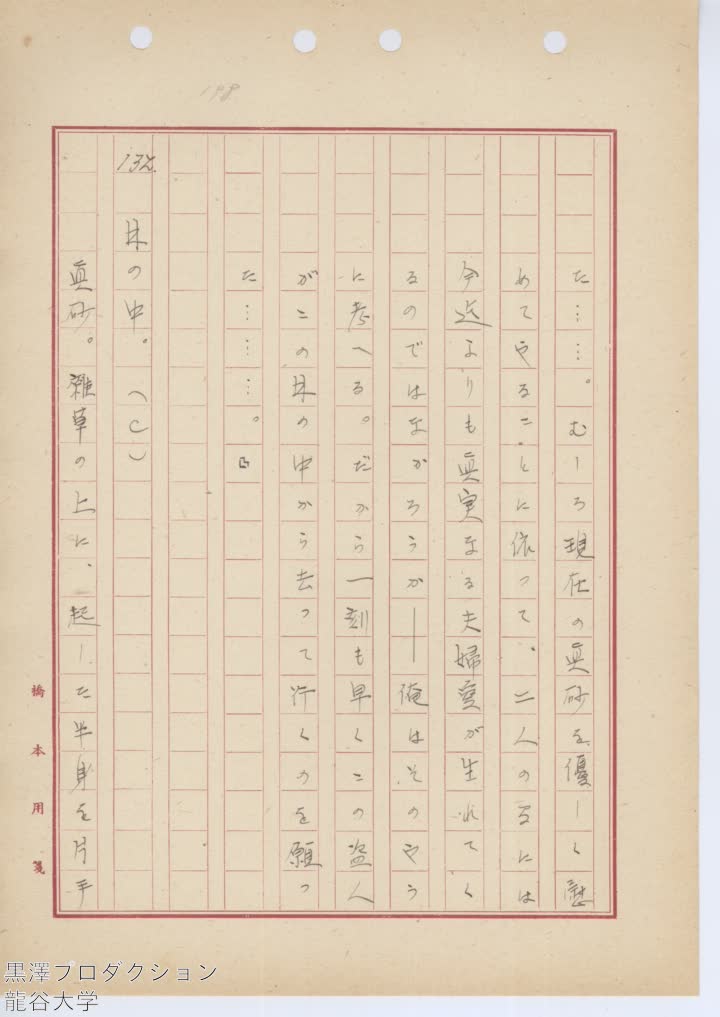 198
た……。むしろ現在の眞砂を優しく慰
めてやることに依って、二人の間には
今迄よりも眞実なる夫婦愛が生れてく
るのではなかろうか――俺はそのやう
に考へる。だから一刻も早くこの盗人
がこの林の中から去って行くのを願っ
た………。』
132. 林の中。(C)
眞砂。雑草の上に、起した半身を片手
橋本用箋
黒澤プロダクション
龍谷大学